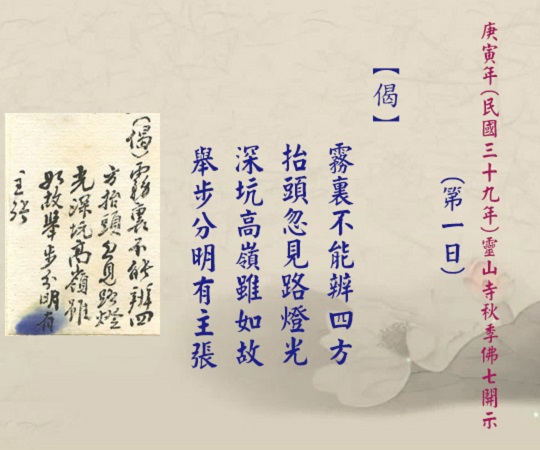 庚寅年(民國三十九年)靈山寺秋季佛七開示
(第一日)
【偈】
霧裏不能辨四方
抬頭忽見路燈光
深坑高嶺雖如故
舉步分明有主張
(偈)霧裏不能辨四
方抬頭忽見路燈
光深坑高嶺雖
如故舉步分明有
主張